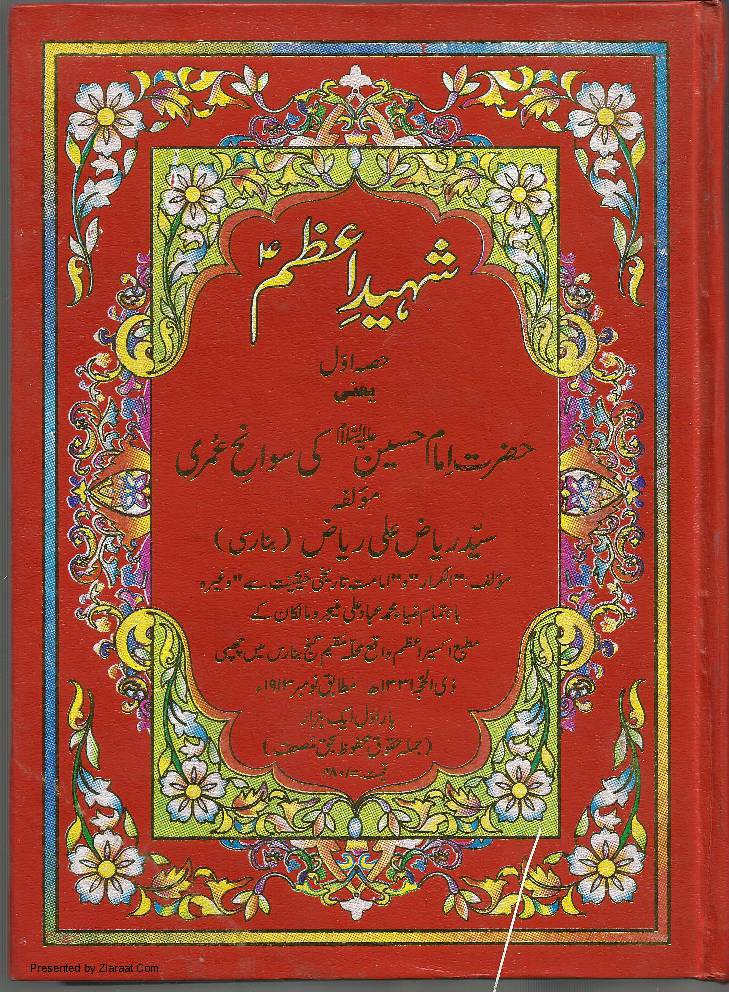 شہیدِ اعظم ؑ
حصہ اوّل
یعنی
حضرت امام حسین علیہ السلام کی سوانح عمری
مؤلفہ
سیّد ریاض علی ریاض (بنارسی)
مؤلف "الکرار" و "امامت تاریخی حیثیت سے" وغیرہ
باہتمام ضیاء محمد عباد علی منیجر و مالکان کے
مطبع اکسیر اعظم واقع محلہ مقیم گنج بنارس میں چھپی
ذی الحجہ ۱۳۳۱ھ مطابق نومبر ۱۹۱۳ء
بار اول ایک ہزار
(جملہ حقوق محفوظ بحق مصنف)
قیمت
Presented by Ziaraat.Com